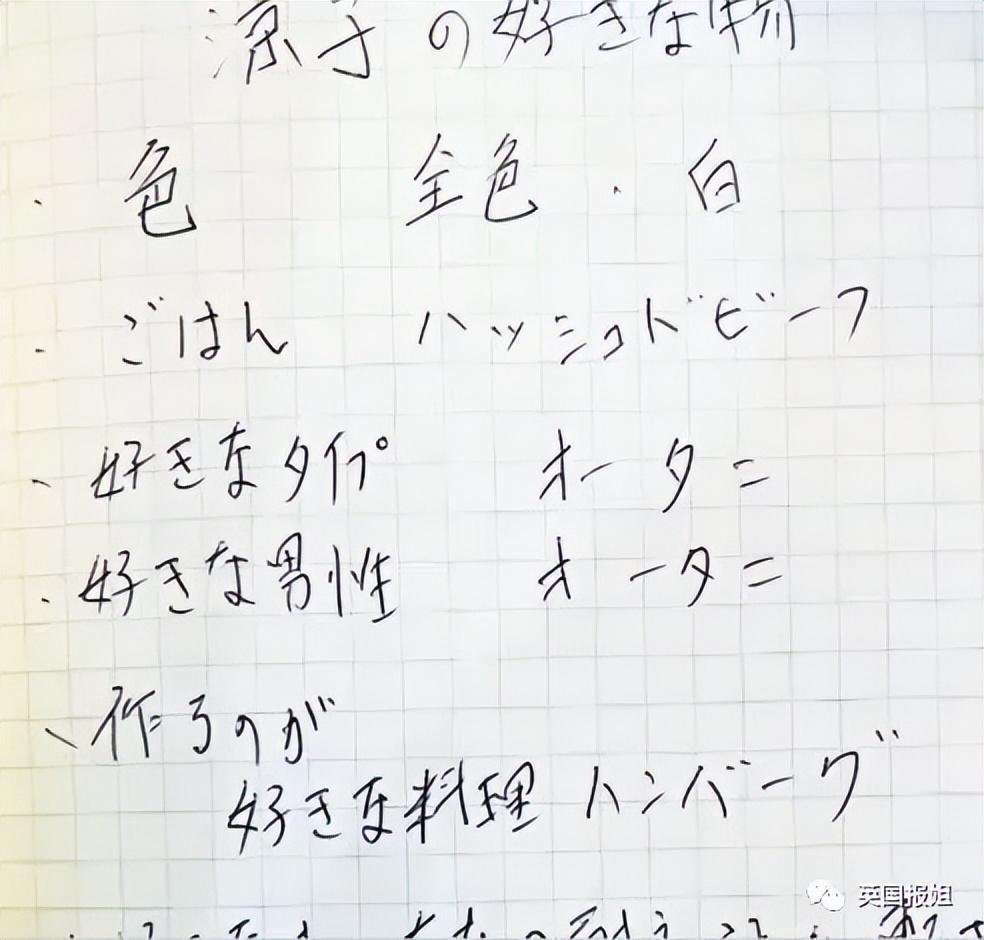 涼子の好きな物
・色 全色・白
・ごはん ハッシュドビーフ
・好きなタイプ オータニ
・好きな男性 オータニ
・作るのが
好きな料理 ハンバーグ
英国报姐